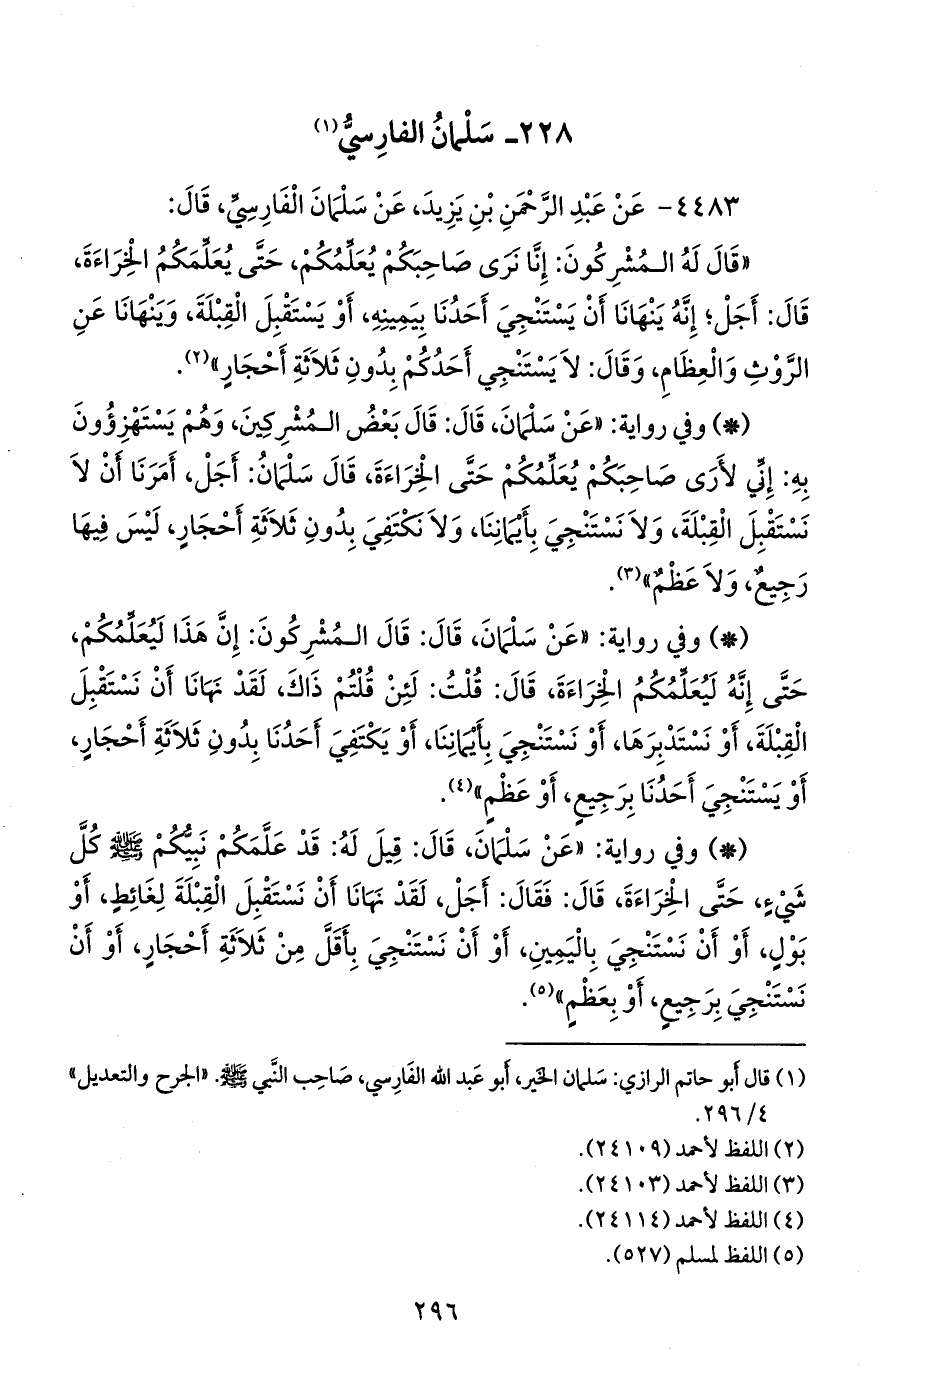 ٢٢٨ـ سَلْمانُ الفارِسيُّ(١)
٤٤٨٣- عَنْ عَبْدِ الرَّحْمَنِ بْنِ يَزِيدَ، عَنْ سَلْمَانَ الْفَارِسِيِّ، قَالَ:
«قَالَ لَهُ الـمُشْرِكُونَ: إِنَّا نَرَى صَاحِبَكُمْ يُعَلِّمُكُمْ، حَتَّى يُعَلِّمَكُمُ الْخِرَاءَةَ،
قَالَ: أَجَلْ؛ إِنَّهُ يَنْهَانَا أَنْ يَسْتَنْجِيَ أَحَدُنَا بِيَمِينِهِ، أَوْ يَسْتَقْبِلَ الْقِبْلَةَ، وَيَنْهَانَا عَنِ
الرَّوْثِ وَالْعِظَامِ، وَقَالَ: لاَ يَسْتَنْجِي أَحَدُكُمْ بِدُونِ ثَلاَثَةِ أَحْجَارٍ»(٢).
(*) وفي رواية: «عَنْ سَلْمَانَ، قَالَ: قَالَ بَعْضُ الـمُشْرِكِينَ، وَهُمْ يَسْتَهْزِؤُونَ
بِهِ: إِنِّي لأَرَى صَاحِبَكُمْ يُعَلِّمُكُمْ حَتَّى الْخِرَاءَةَ، قَالَ سَلْمَانُ: أَجَلْ، أَمَرَنَا أَنْ لاَ
نَسْتَقْبِلَ الْقِبْلَةَ، وَلاَ نَسْتَنْجِيَ بِأَيْمَانِنَا، وَلاَ نَكْتَفِيَ بِدُونِ ثَلاَثَةِ أَحْجَارٍ، لَيْسَ فِيهَا
رَجِيعٌ، وَلاَ عَظْمٌ»(٣).
(*) وفي رواية: «عَنْ سَلْمَانَ، قَالَ: قَالَ الـمُشْرِكُونَ: إِنَّ هَذَا لَيُعَلِّمُكُمْ،
حَتَّى إِنَّهُ لَيُعَلِّمُكُمُ الْخِرَاءَةَ، قَالَ: قُلْتُ: لَئِنْ قُلْتُمْ ذَاكَ، لَقَدْ نَهَانَا أَنْ نَسْتَقْبِلَ
الْقِبْلَةَ، أَوْ نَسْتَدْبِرَهَا، أَوْ نَسْتَنْجِيَ بِأَيْمَانِنَا، أَوْ يَكْتَفِيَ أَحَدُنَا بِدُونِ ثَلاَثَةِ أَحْجَارٍ،
أَوْ يَسْتَنْجِيَ أَحَدُنَا بِرَجِيعٍ، أَوْ عَظْمٍ»(٤).
(*) وفي رواية: «عَنْ سَلْمَانَ، قَالَ: قِيلَ لَهُ: قَدْ عَلَّمَكُمْ نَبِيُّكُمْ ﷺ كُلَّ
شَيْءٍ، حَتَّى الْخِرَاءَةَ، قَالَ: فَقَالَ: أَجَلْ، لَقَدْ نَهَانَا أَنْ نَسْتَقْبِلَ الْقِبْلَةَ لِغَائِطٍ، أَوْ
بَوْلٍ، أَوْ أَنْ نَسْتَنْجِيَ بِالْيَمِينِ، أَوْ أَنْ نَسْتَنْجِيَ بِأَقَلَّ مِنْ ثَلاَثَةِ أَحْجَارٍ، أَوْ أَنْ
نَسْتَنْجِيَ بِرَجِيعٍ، أَوْ بِعَظْمٍ»(٥).
(١) قال أَبو حاتم الرازي: سَلمان الخَير، أَبو عَبد الله الفَارِسي، صَاحِب النَّبي ﷺ. «الجرح والتعديل»
٤/ ٢٩٦.
(٢) اللفظ لأحمد (٢٤١٠٩).
(٣) اللفظ لأحمد (٢٤١٠٣).
(٤) اللفظ لأحمد (٢٤١١٤).
(٥) اللفظ لمسلم (٥٢٧).
٢٩٦